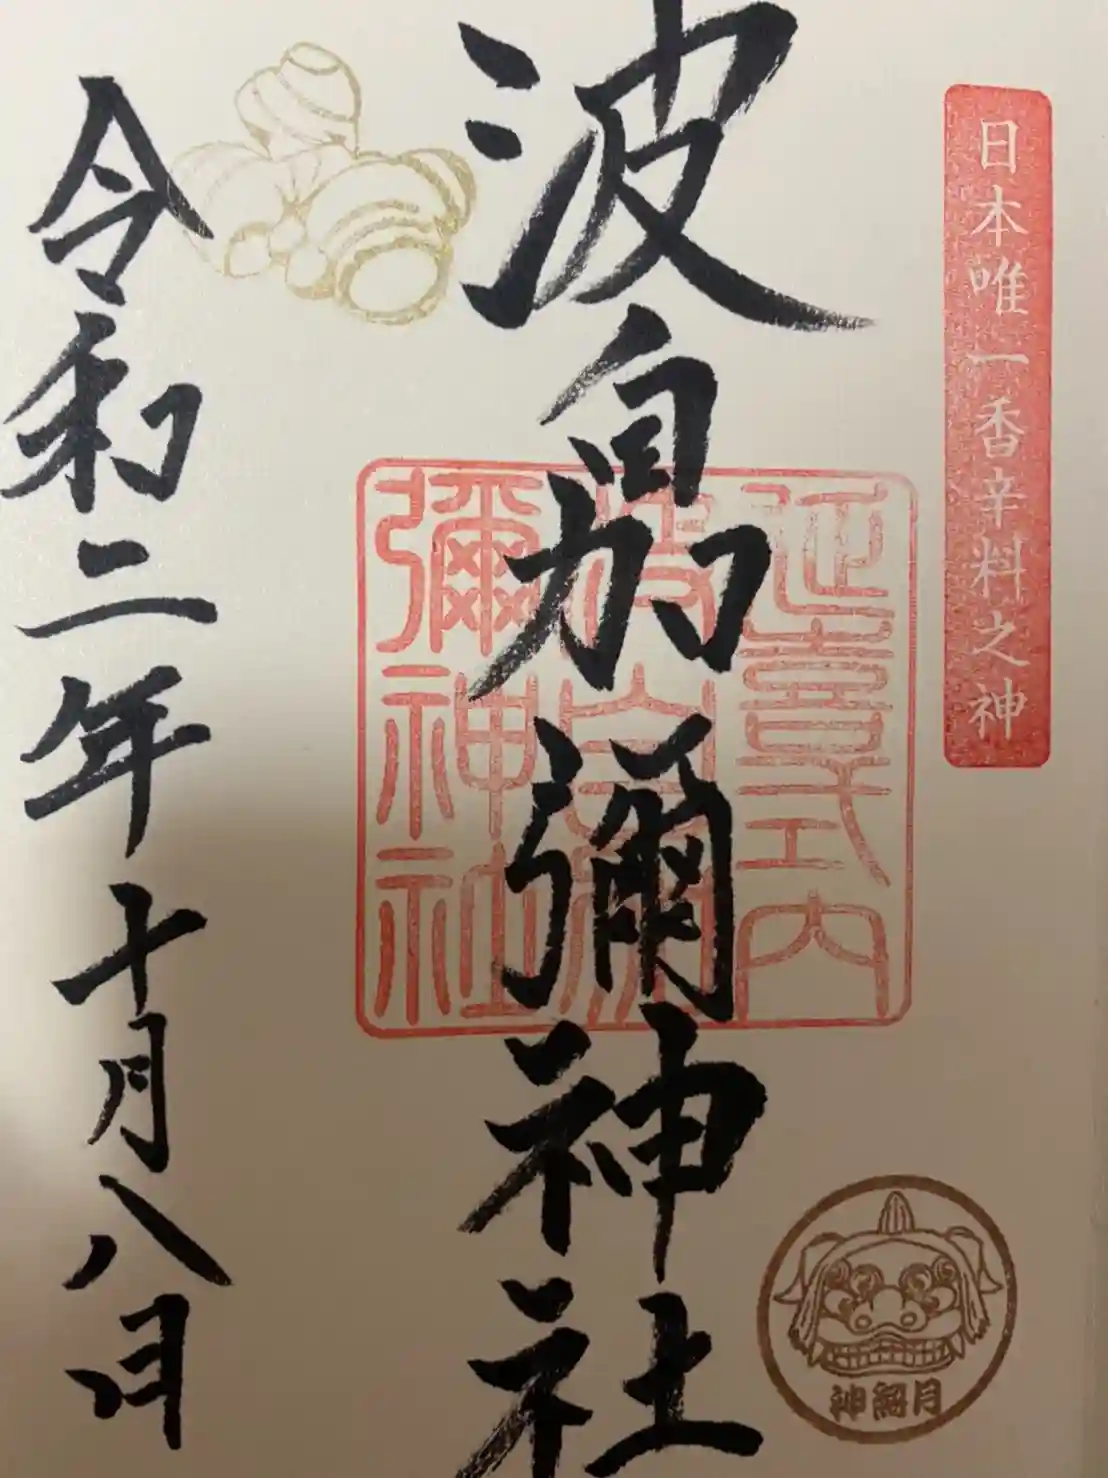 日本唯一香辛料之神
波自加彌神社
延喜式内
彌神社
令和二年十月八日